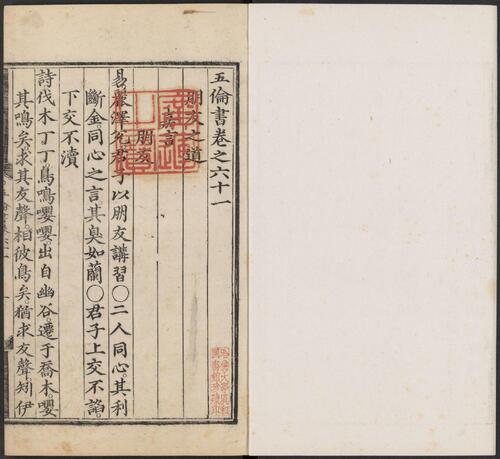 五倫書卷之六十一
朋友之道
嘉言
朋友
易麗澤兌君子以朋友講習○二人同心其利
斷金同心之言其臭如蘭○君子上交不諂
下交不瀆
詩伐木丁丁鳥鳴嚶嚶出自幽谷遷于喬木嚶
其鳴矣求其友聲相彼鳥矣猶求友聲矧伊